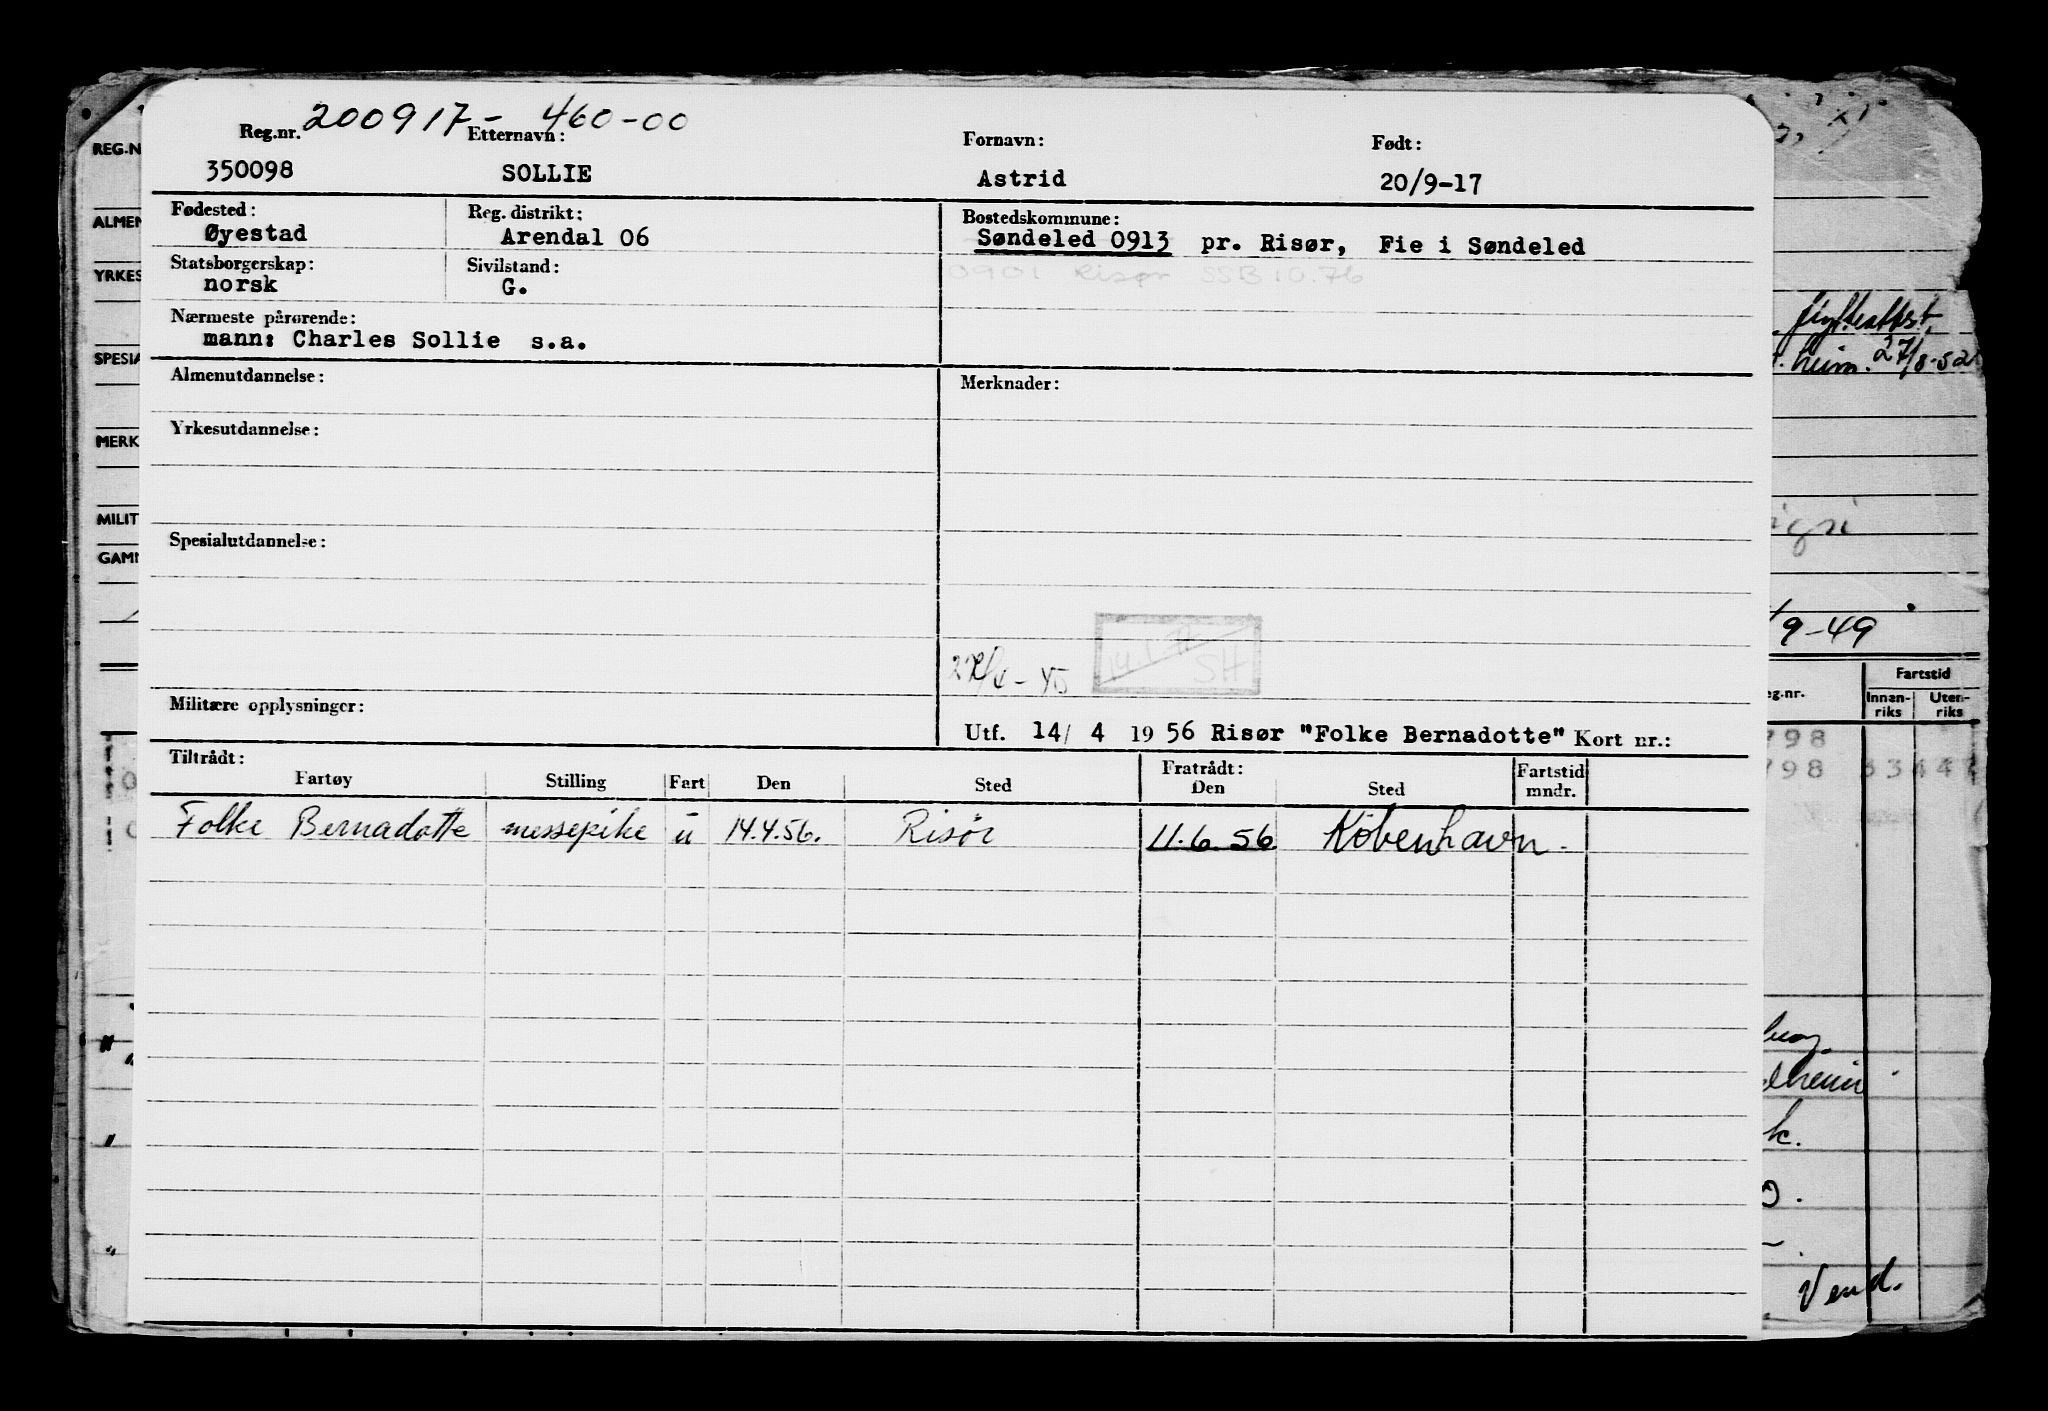 200917- 460-00
Reg.nr. Etternavn: Fornavn: Født:
350098 SOLLIE Astrid 20/9-17
Fødested: Reg. distrikt: Bostedskommune:
Øyestad Arendal 06 Søndeled 0913 pr. Risør, Fie i Søndeled
Statsborgerskap: Sivilstand: 0901 Risør SSB 10.76
norsk G.
Nærmeste pårørende:
mann: Charles Sollie s.a.
Almenutdannelse: Merknader:
Yrkesutdannelse:
Spesialutdannelse:
SH
Militære opplysninger:
Utf. 14/ 4 19 56 Risør "Folke Bernadotte" Kort nr.:
Tiltrådt: Fratrådt: Fartstid
Fartøy Stilling Fart Den Sted Den Sted mndr.
Folke Bernadotte messepike u 14.4.56. Risör 11.6.56 København.
REG.N
ALMEN
YRKES
SPESIA
MERK
MILIT
GAMN
flytteattst
heim. 27/8-52
/9-49
Fartstid
eg.nr. Innen- Uten-
riks riks
798
798
Vend.